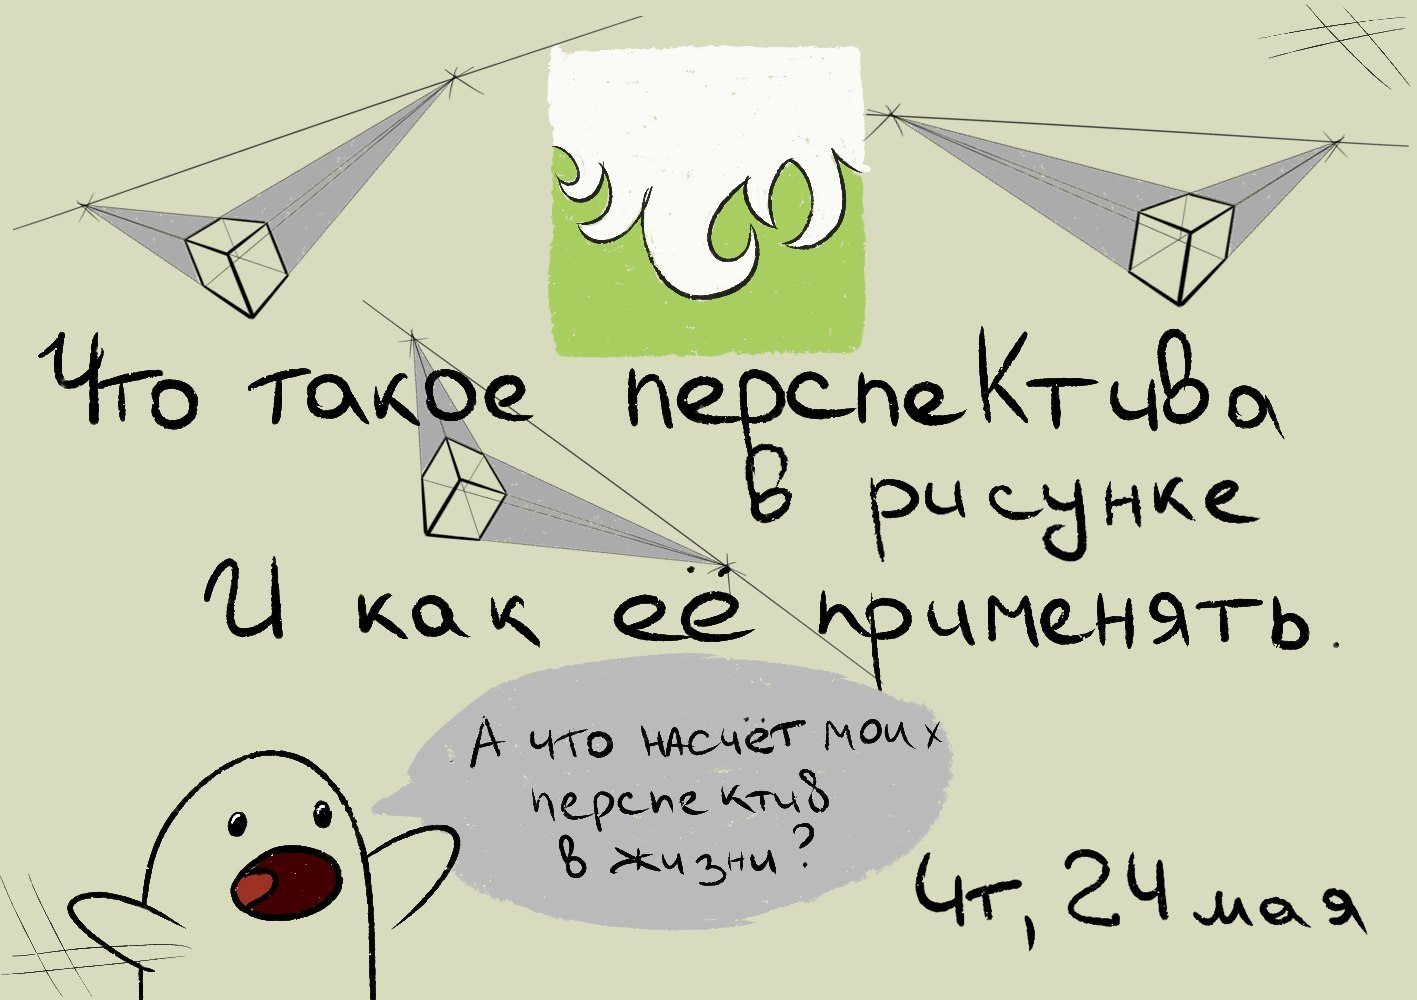 Что такое перспектива
в рисунке
И как её применять.
А что насчёт моих
перспектив
в жизни?
Чт, 24 мая